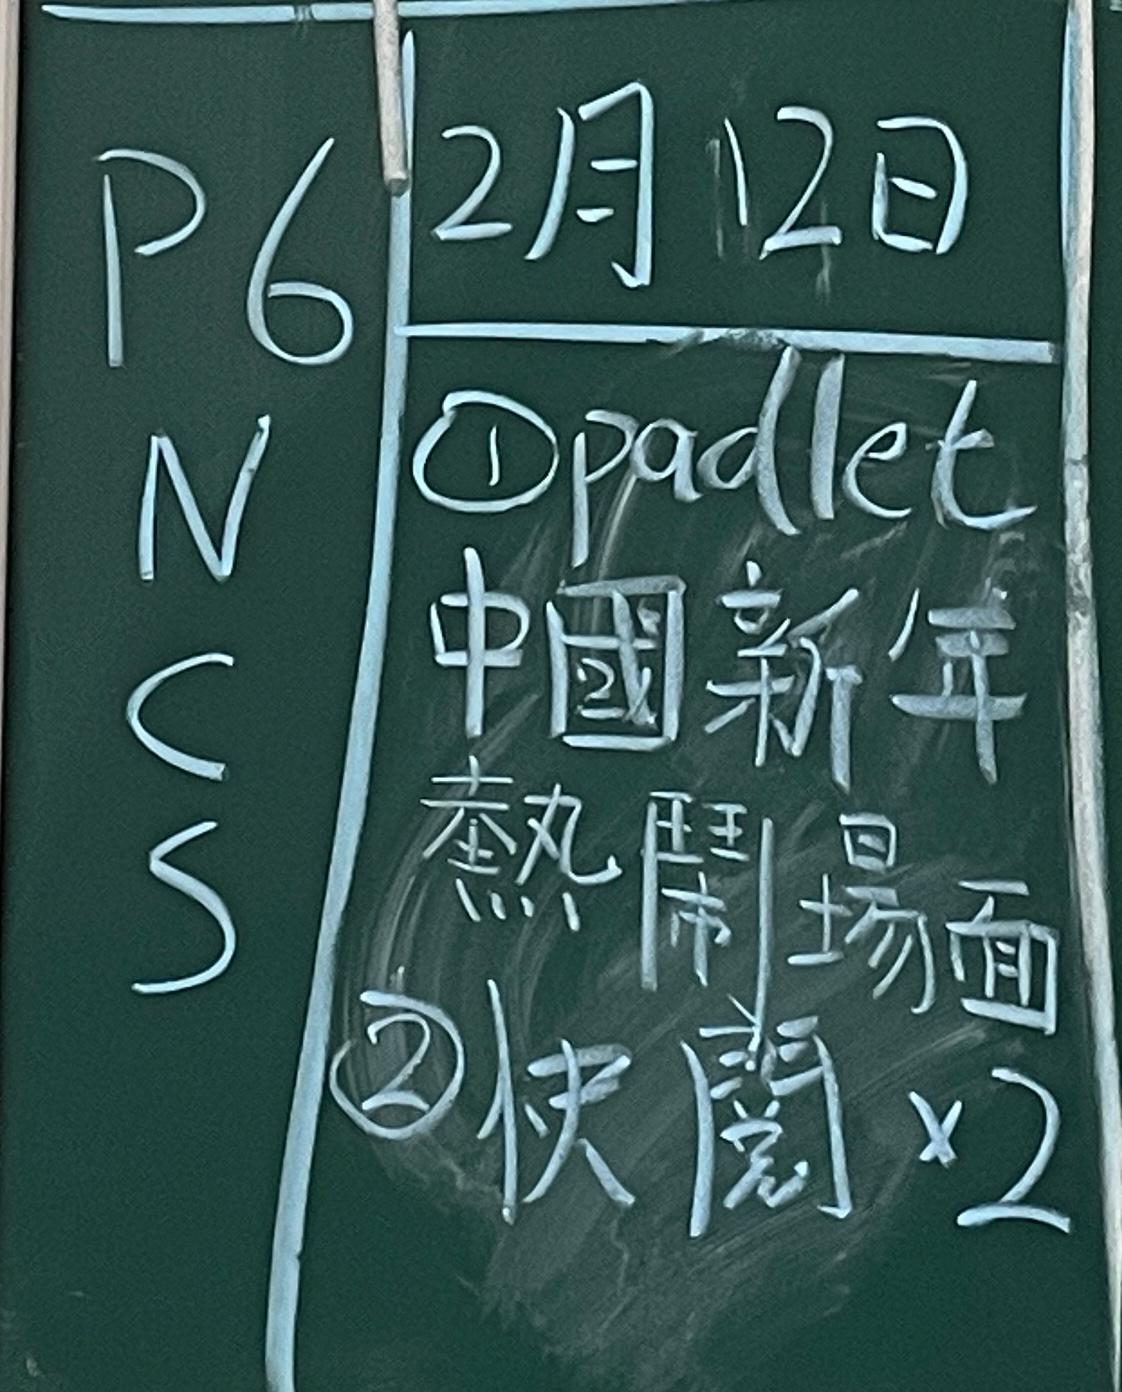 P6
N
C
S
2月12日
①padlet
中國新年
熱鬧場面
②快閱×2